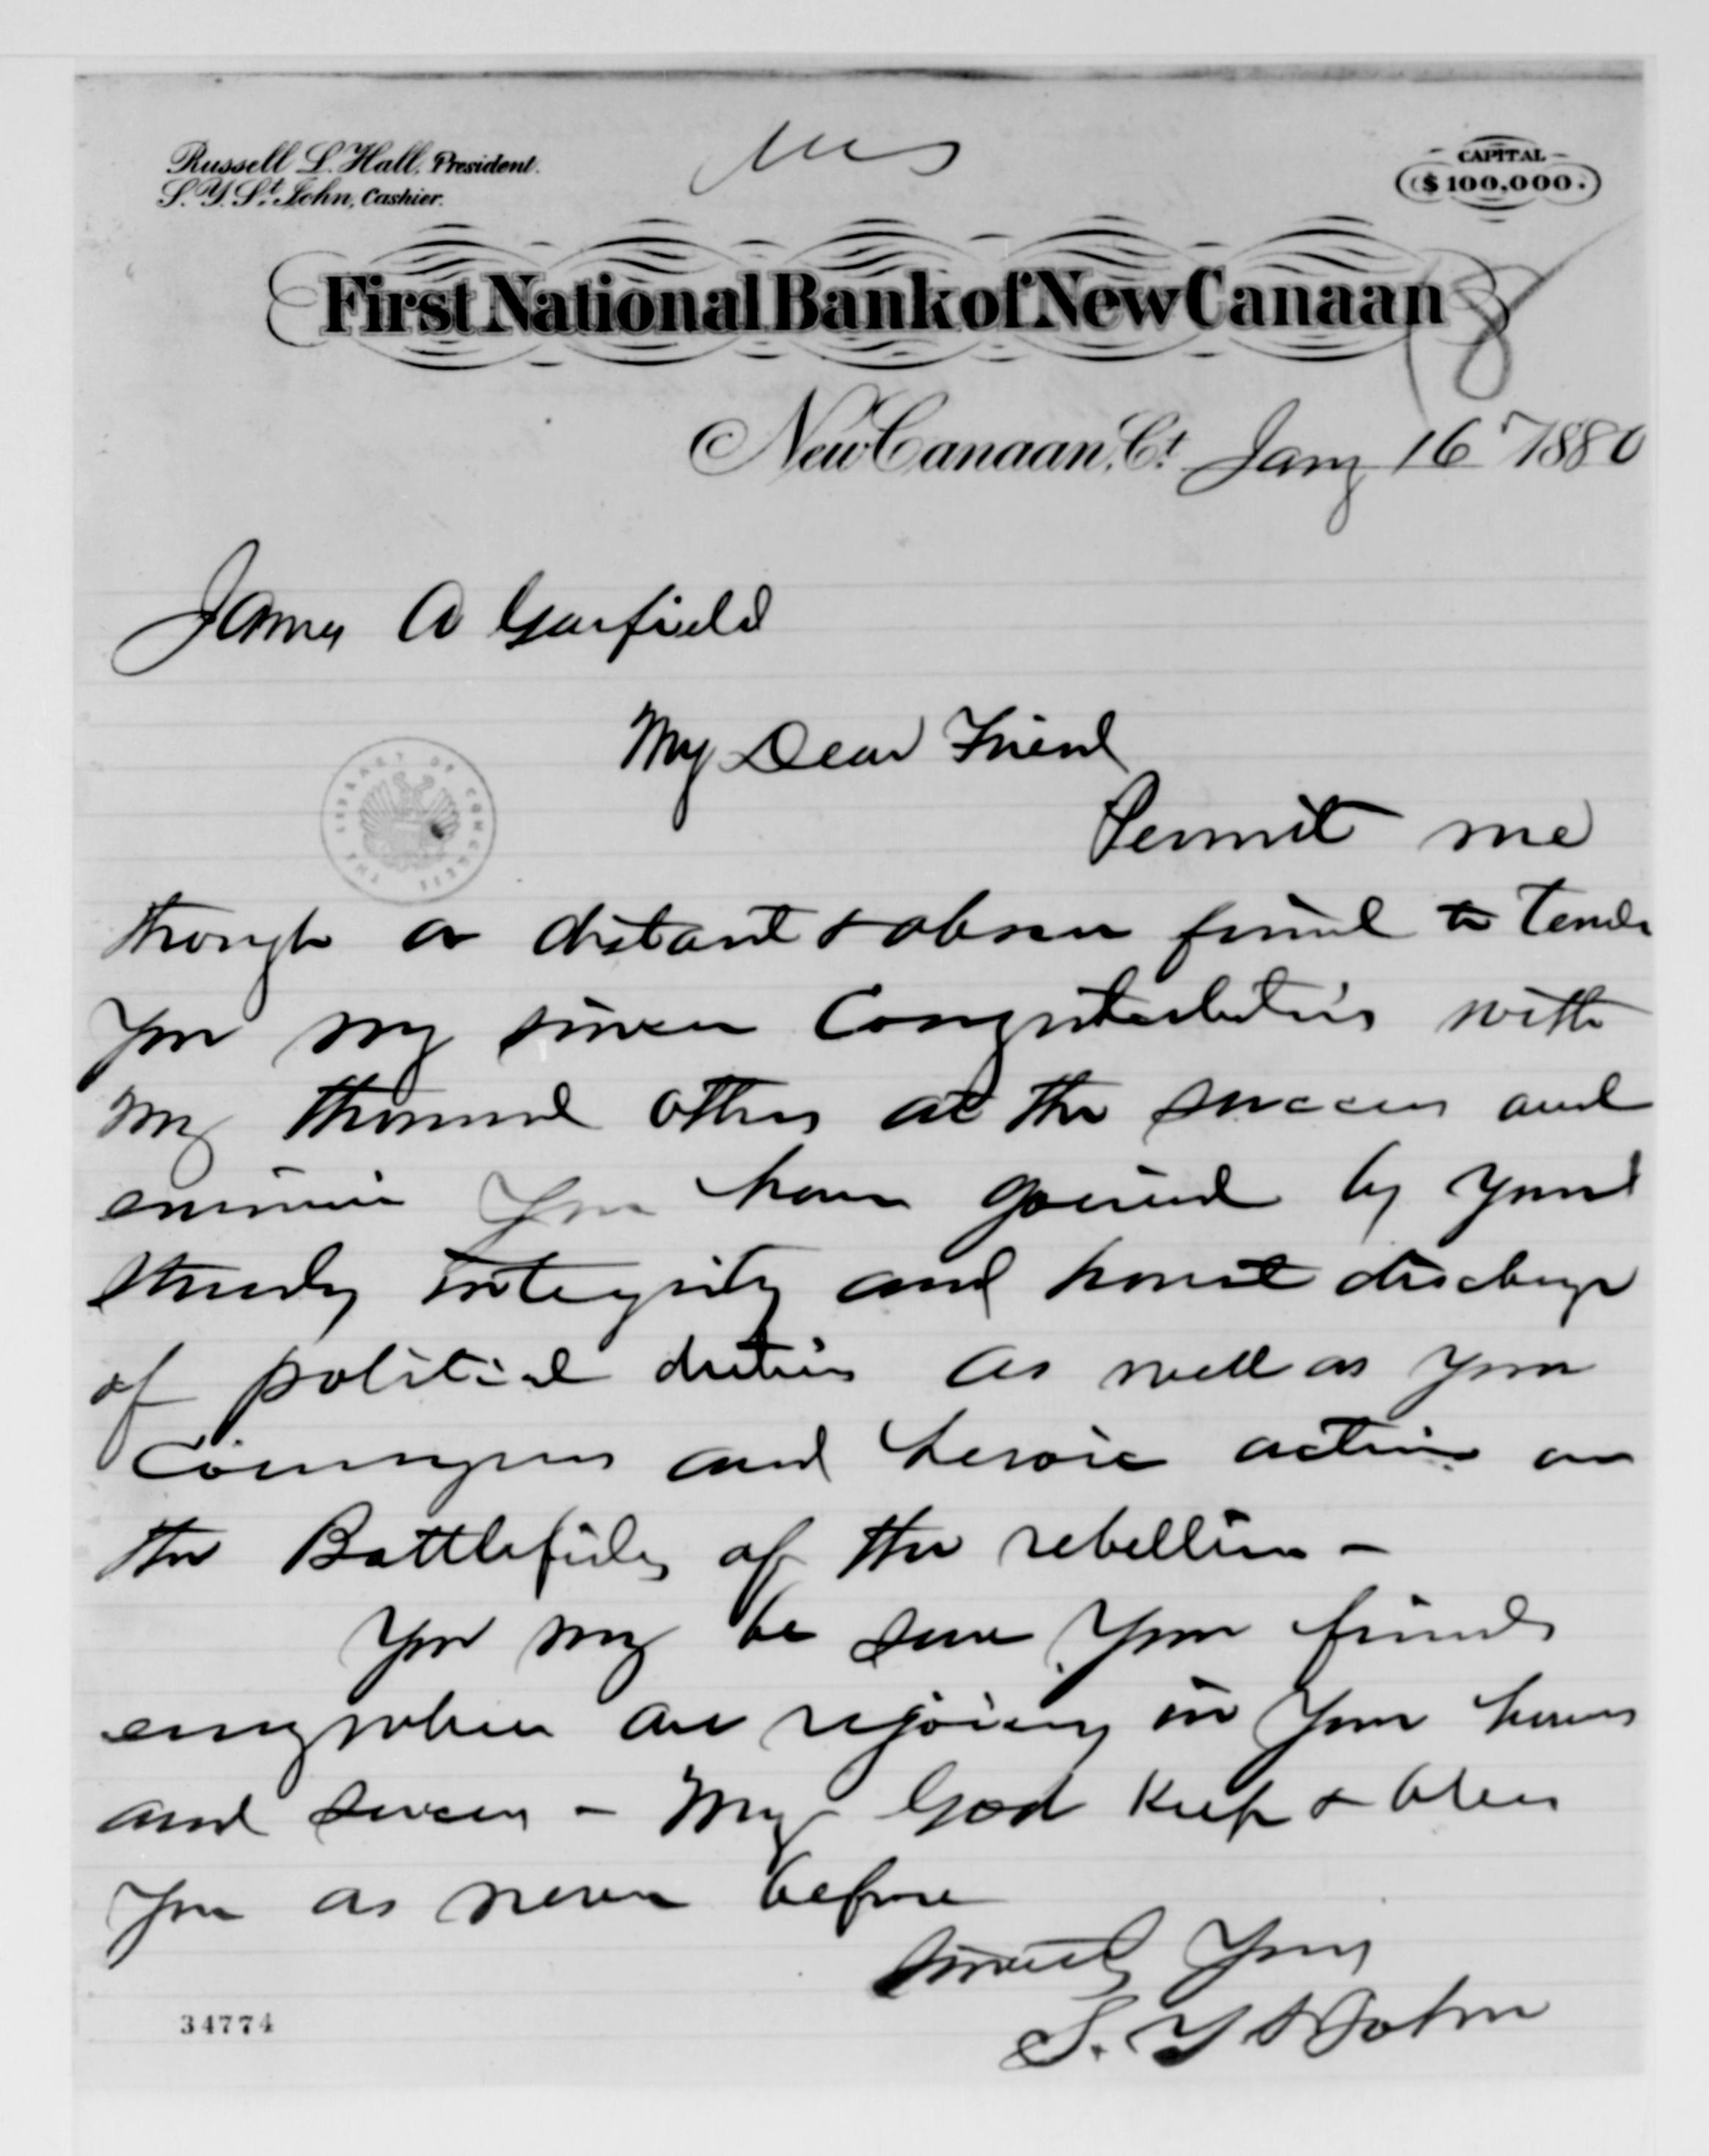 Russell L. Hall, President.
S. Y. St. John, Cashier.
CAPITAL
$100,000.
First National Bank of New Canaan
18
New Canaan, Ct. Jany 16 1880
James A Garfield
My Dear Friend
Permit me
though a distant & obscure friend to tender
you my sincere Congratulations with
my thousand others at the success and
eminence you have gained by your
sturdy integrity and honest discharge
of political duties as well as your
Courageous and heroic action on
the Battlefields of the rebellion -
You may be sure your friends
everywhere are rejoicing in your honors
and success - May God Keep & bless
you as never before
Sincerely Yours
S. Y St John
THE LIBRARY OF CONGRESS
34774